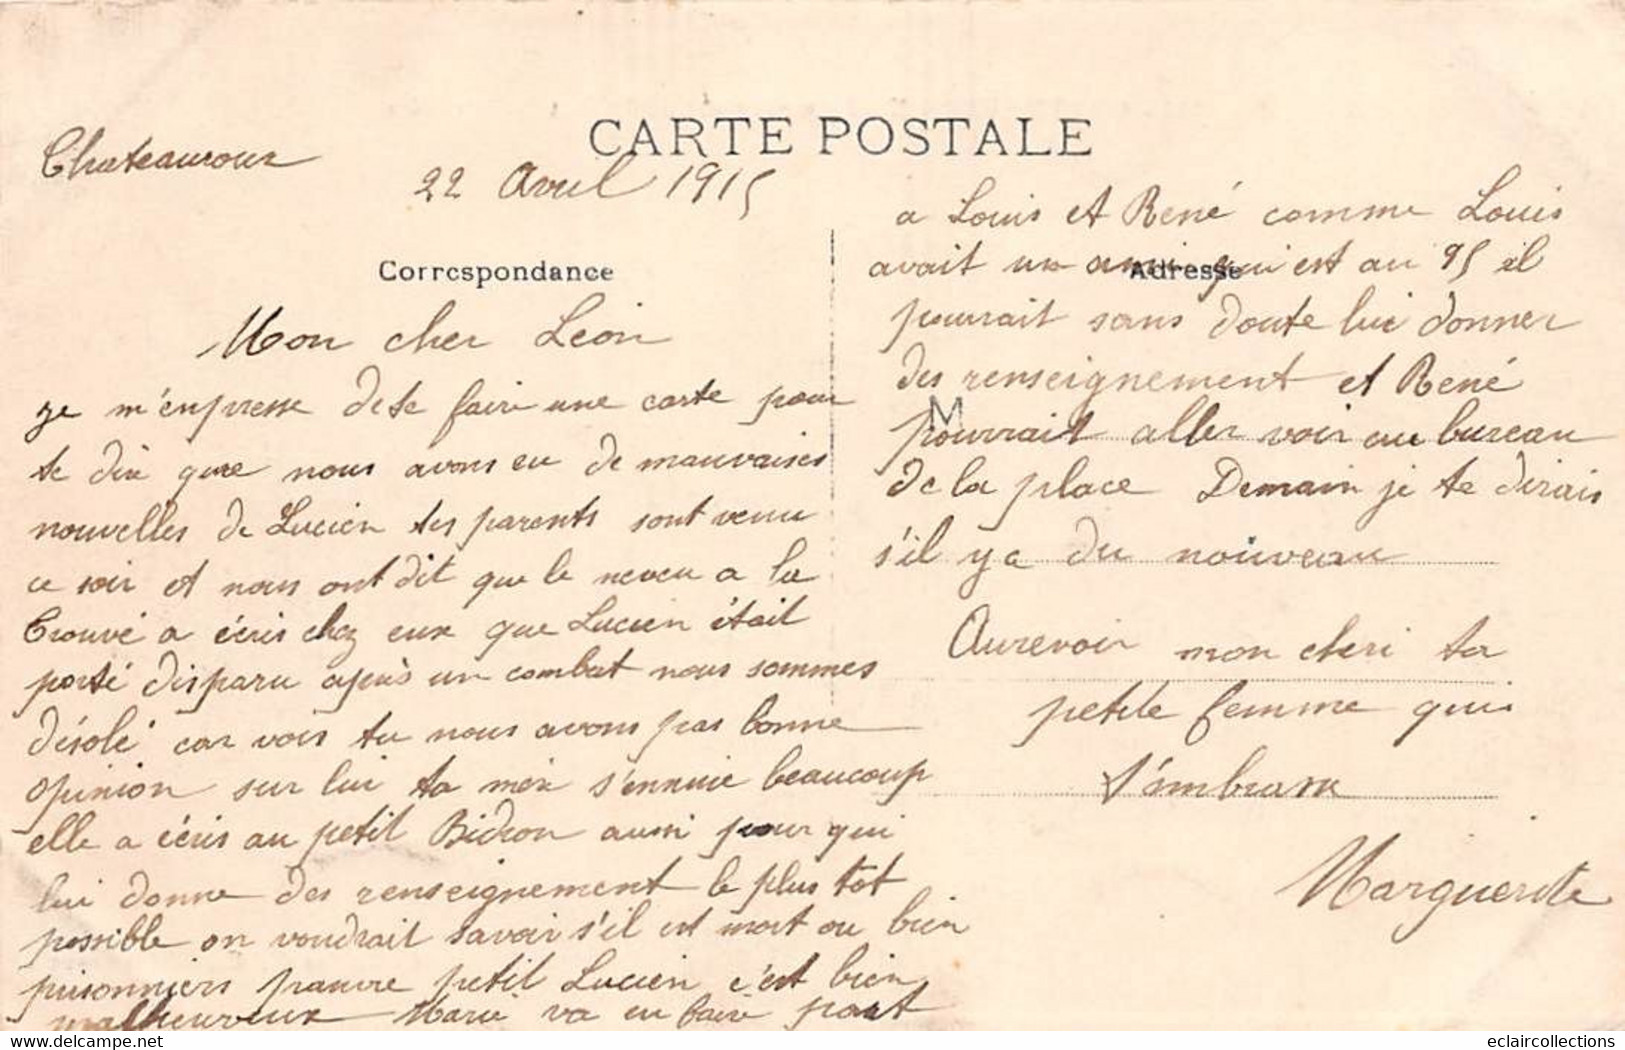 CARTE POSTALE
Chateauroux
22 Avril 1915
Correspondance
Mon cher Léon
je m'enpresse de te faire une carte pour
te dire que nous avons eu de mauvaises
nouvelles de Lucien tes parents sont venu
ce soir et nous ont dit que le neveu a la
Crouvé a écris chez eux que Lucien était
porté disparu après un combat nous sommes
désolé car vois tu nous avons pas bonne
opinion sur lui ta mère s'ennuie beaucoup
elle a écris au petit Bidron aussi pour qui
lui donne des renseignement le plus tot
possible on voudrait savoir s'il est mort ou bien
prisonniers pauvre petit Lucien c'est bien
malheureux Marie va en faire part
a Louis et René comme Louis
avait un ami qui est au 95 il
Adresse
pourrait sans doute lui donner
des renseignement et René
M
pourrait aller voir au bureau
de la place Demain je te dirais
s'il y a du nouveau
Aurevoir mon cheri ta
petite femme qui
t'embrasse
Marguerite
www.delcampe.net
eclaircollections